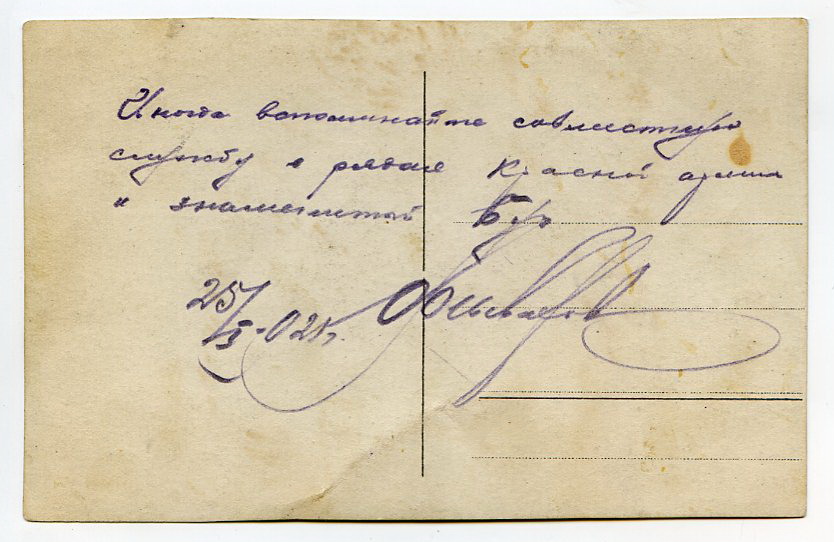 Иногда вспоминайте совместную
службу в рядах Красной армии
и знаменитой
25/I-02г.